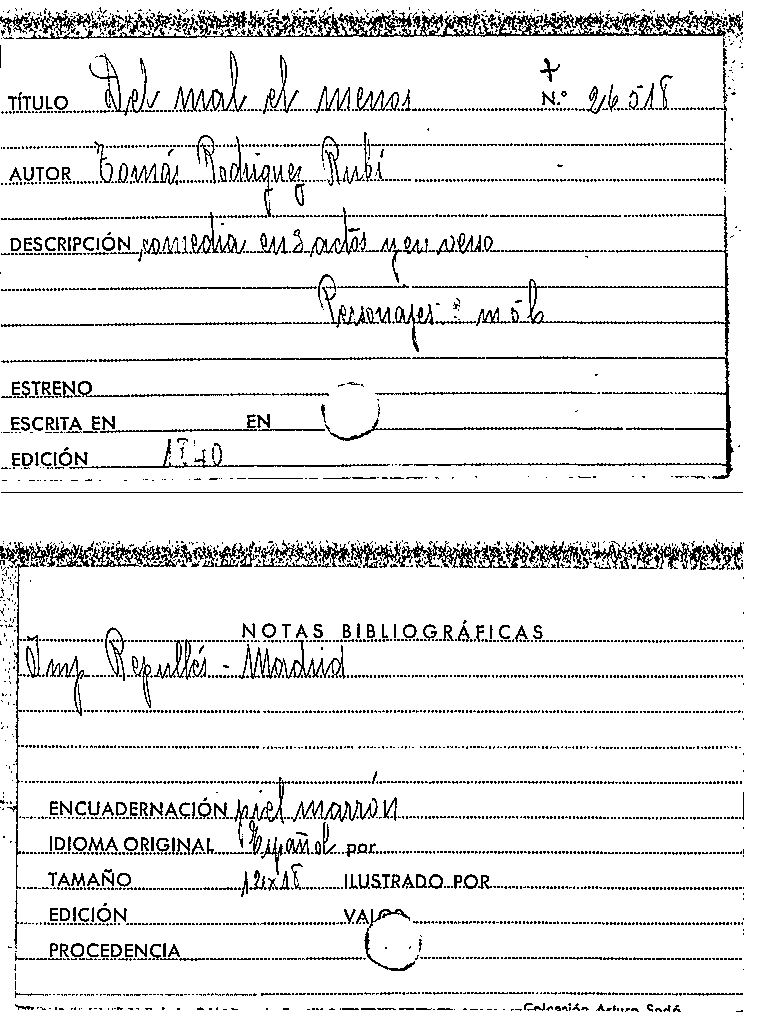 TÍTULO Del mal el menos N.º 26518
AUTOR Tomás Rodriguez Rubí
DESCRIPCIÓN comedia en 3 actos y en verso
Personajes: m 5 h
ESTRENO
ESCRITA EN EN
EDICIÓN 1840
NOTAS BIBLIOGRÁFICAS
Imp Repullés - Madrid
ENCUADERNACIÓN piel marrón
IDIOMA ORIGINAL Español por
TAMAÑO 12x18 ILUSTRADO POR
EDICIÓN VALOR
PROCEDENCIA
Colección Arturo Sedó